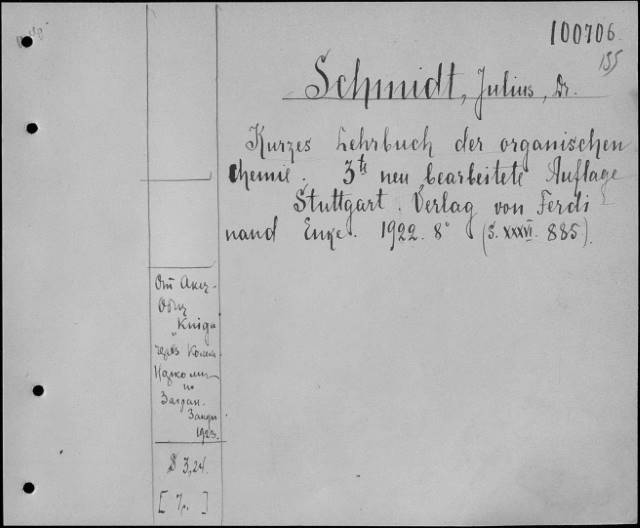 100706
155
Schmidt, Julius, Dr.
Kurzes Lehrbuch der organischen
Chemie. 3te neu bearbeitete Auflage
Stuttgart. Verlag von Ferdi
nand Enke. 1922. 8° (S. XXXVI. 885).
От Акц.
Общ
"Kniga
через
по
Загран.
1923.
$ 3,24.